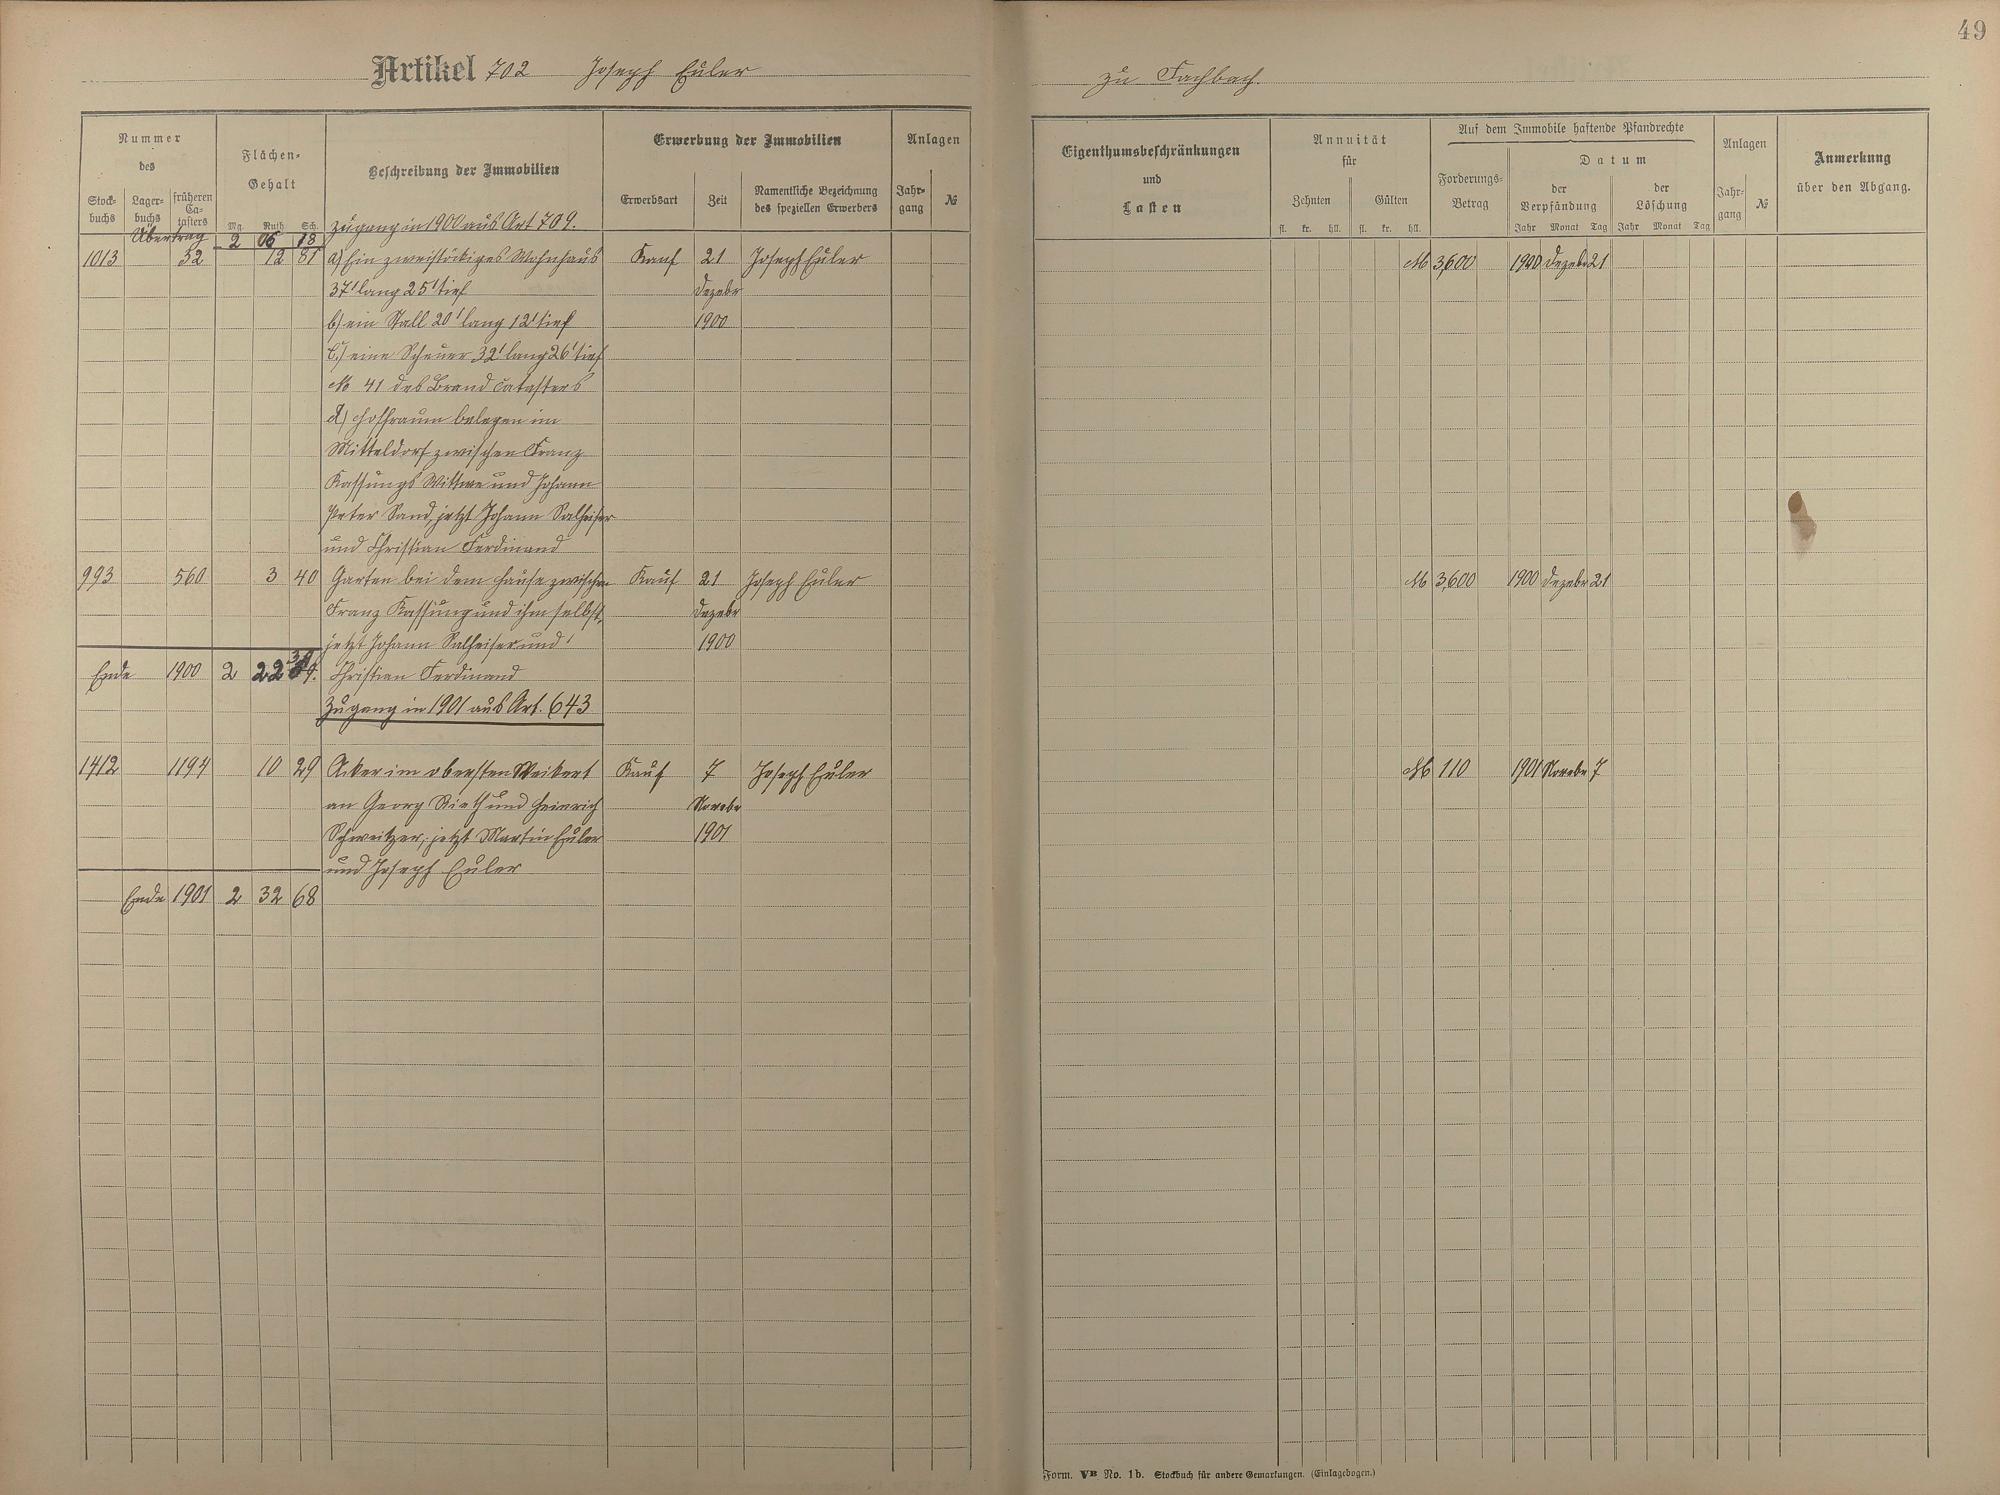 49
Artikel 702 Joseph Euler
zu Fachbach.
Nummer
des
Stock-
buchs
Lager-
buchs
früheren
Ca-
tasters
Flächen-
Gehalt
Mg. Ruth. Sch.
Beschreibung der Immobilien
Erwerbung der Immobilien
Erwerbsart
Zeit
Namentliche Bezeichnung
des speziellen Erwerbers
Anlagen
Jahr-
gang
№
Eigenthumsbeschränkungen
und
Lasten
Annuität
für
Zehnten Gülten
fl. kr. hll. fl. kr. hll.
Auf dem Immobile haftende Pfandrechte
Forderungs-
Betrag
Datum
der
Verpfändung
der
Löschung
Jahr Monat Tag Jahr Monat Tag
Anlagen
Jahr-
gang
№
Anmerkung
über den Abgang.
Zugang in 1900 aus Art 709.
Übertrag 2 06 18
1013 52 12 81 a) Ein zweistöckiges Wohnhaus Kauf 21 Joseph Euler M 3,600 1900 Dezebr 21
37' lang 25' tief Dezebr
b) ein Stall 20' lang 12' tief 1900
c.) eine Scheuer 32' lang 26' tief
No 41 des Brand Catasters
d) Hofraum belegen im
Mitteldorf zwischen Franz
Kassungs Wittwe und Johann
Peter Sand, jetzt Johann Salheiser
und Christian Ferdinand
993 560 3 40 Garten bei dem Hause zwischen Kauf 21 Joseph Euler M 3,600 1900 Dezebr 21
Franz Kassung und ihm selbst, Dezebr
jetzt Johann Salheiser und 1900
Ende 1900 2 22 39. Christian Ferdinand
Zugang in 1901 aus Art. 643
1412 1194 10 29 Acker im obersten Weikert Kauf 7 Joseph Euler M 110 1901 Novebr 7
an Georg Rieth und Heinrich Novebr
Schweitzer, jetzt Martin Euler 1901
und Joseph Euler
Ende 1901 2 32 68
Form. VB No. 1b. Stockbuch für andere Gemarkungen. (Einlagebogen.)